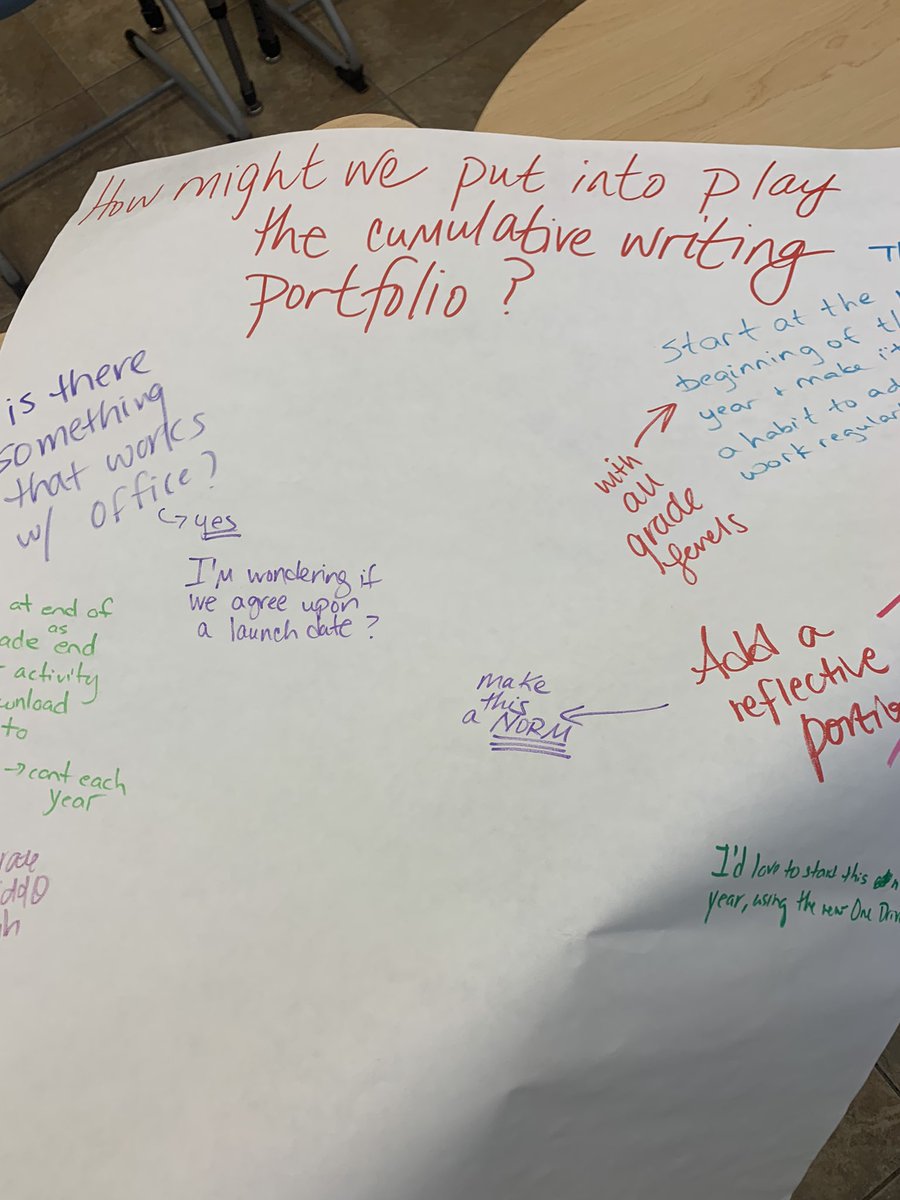 How might we put into play
the cumulative writing
portfolio?
is there
something
that works
w/ office?
↳ yes
I'm wondering if
we agree upon
a launch date?
at end of
as
end
activity
to
→ cont each
year
make
this
a NORM
start at the
beginning of
year + make
a habit to
work
with
all
grade
levels
Add a
reflective
I'd love to start this
year, using the new One